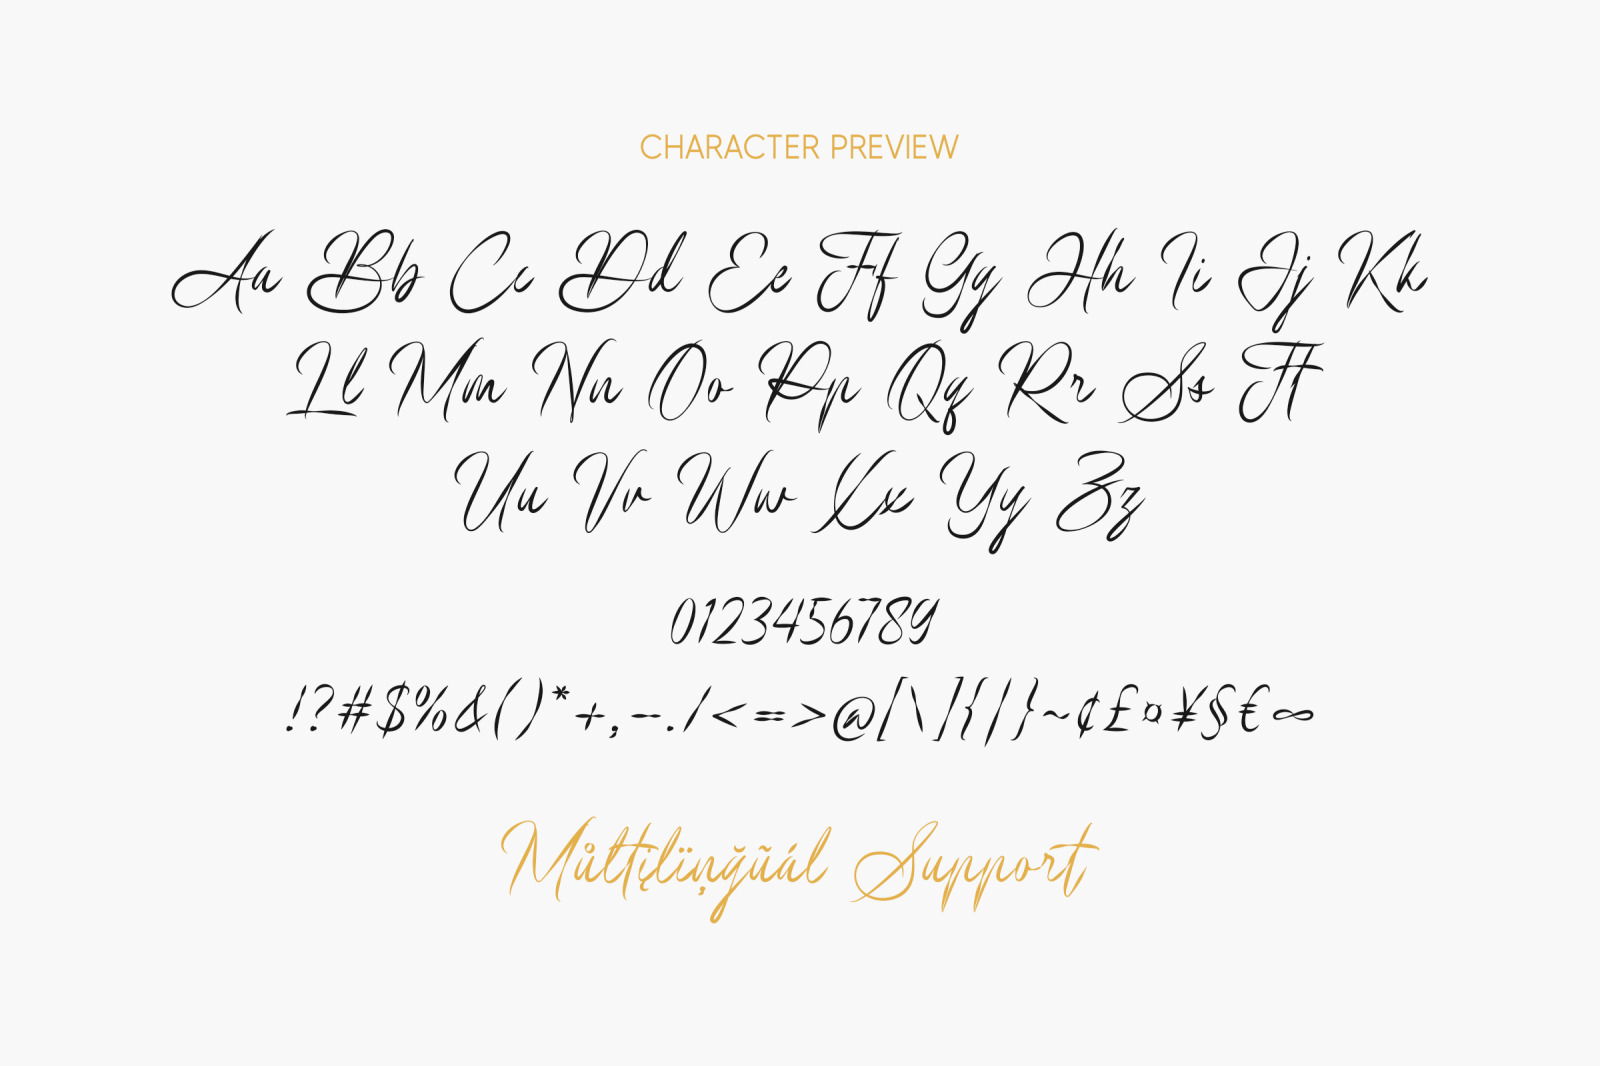 CHARACTER PREVIEW
Aa Bb Cc Dd Ee Ff Gg Hh Ii Jj Kk
Ll Mm Nn Oo Pp Qq Rr Ss Tt
Uu Vv Ww Xx Yy Zz
0123456789
!?#$%&()*+,-./<=>@[\]{|}~¢£¤¥§€∞
Můltįlïņğũál Support